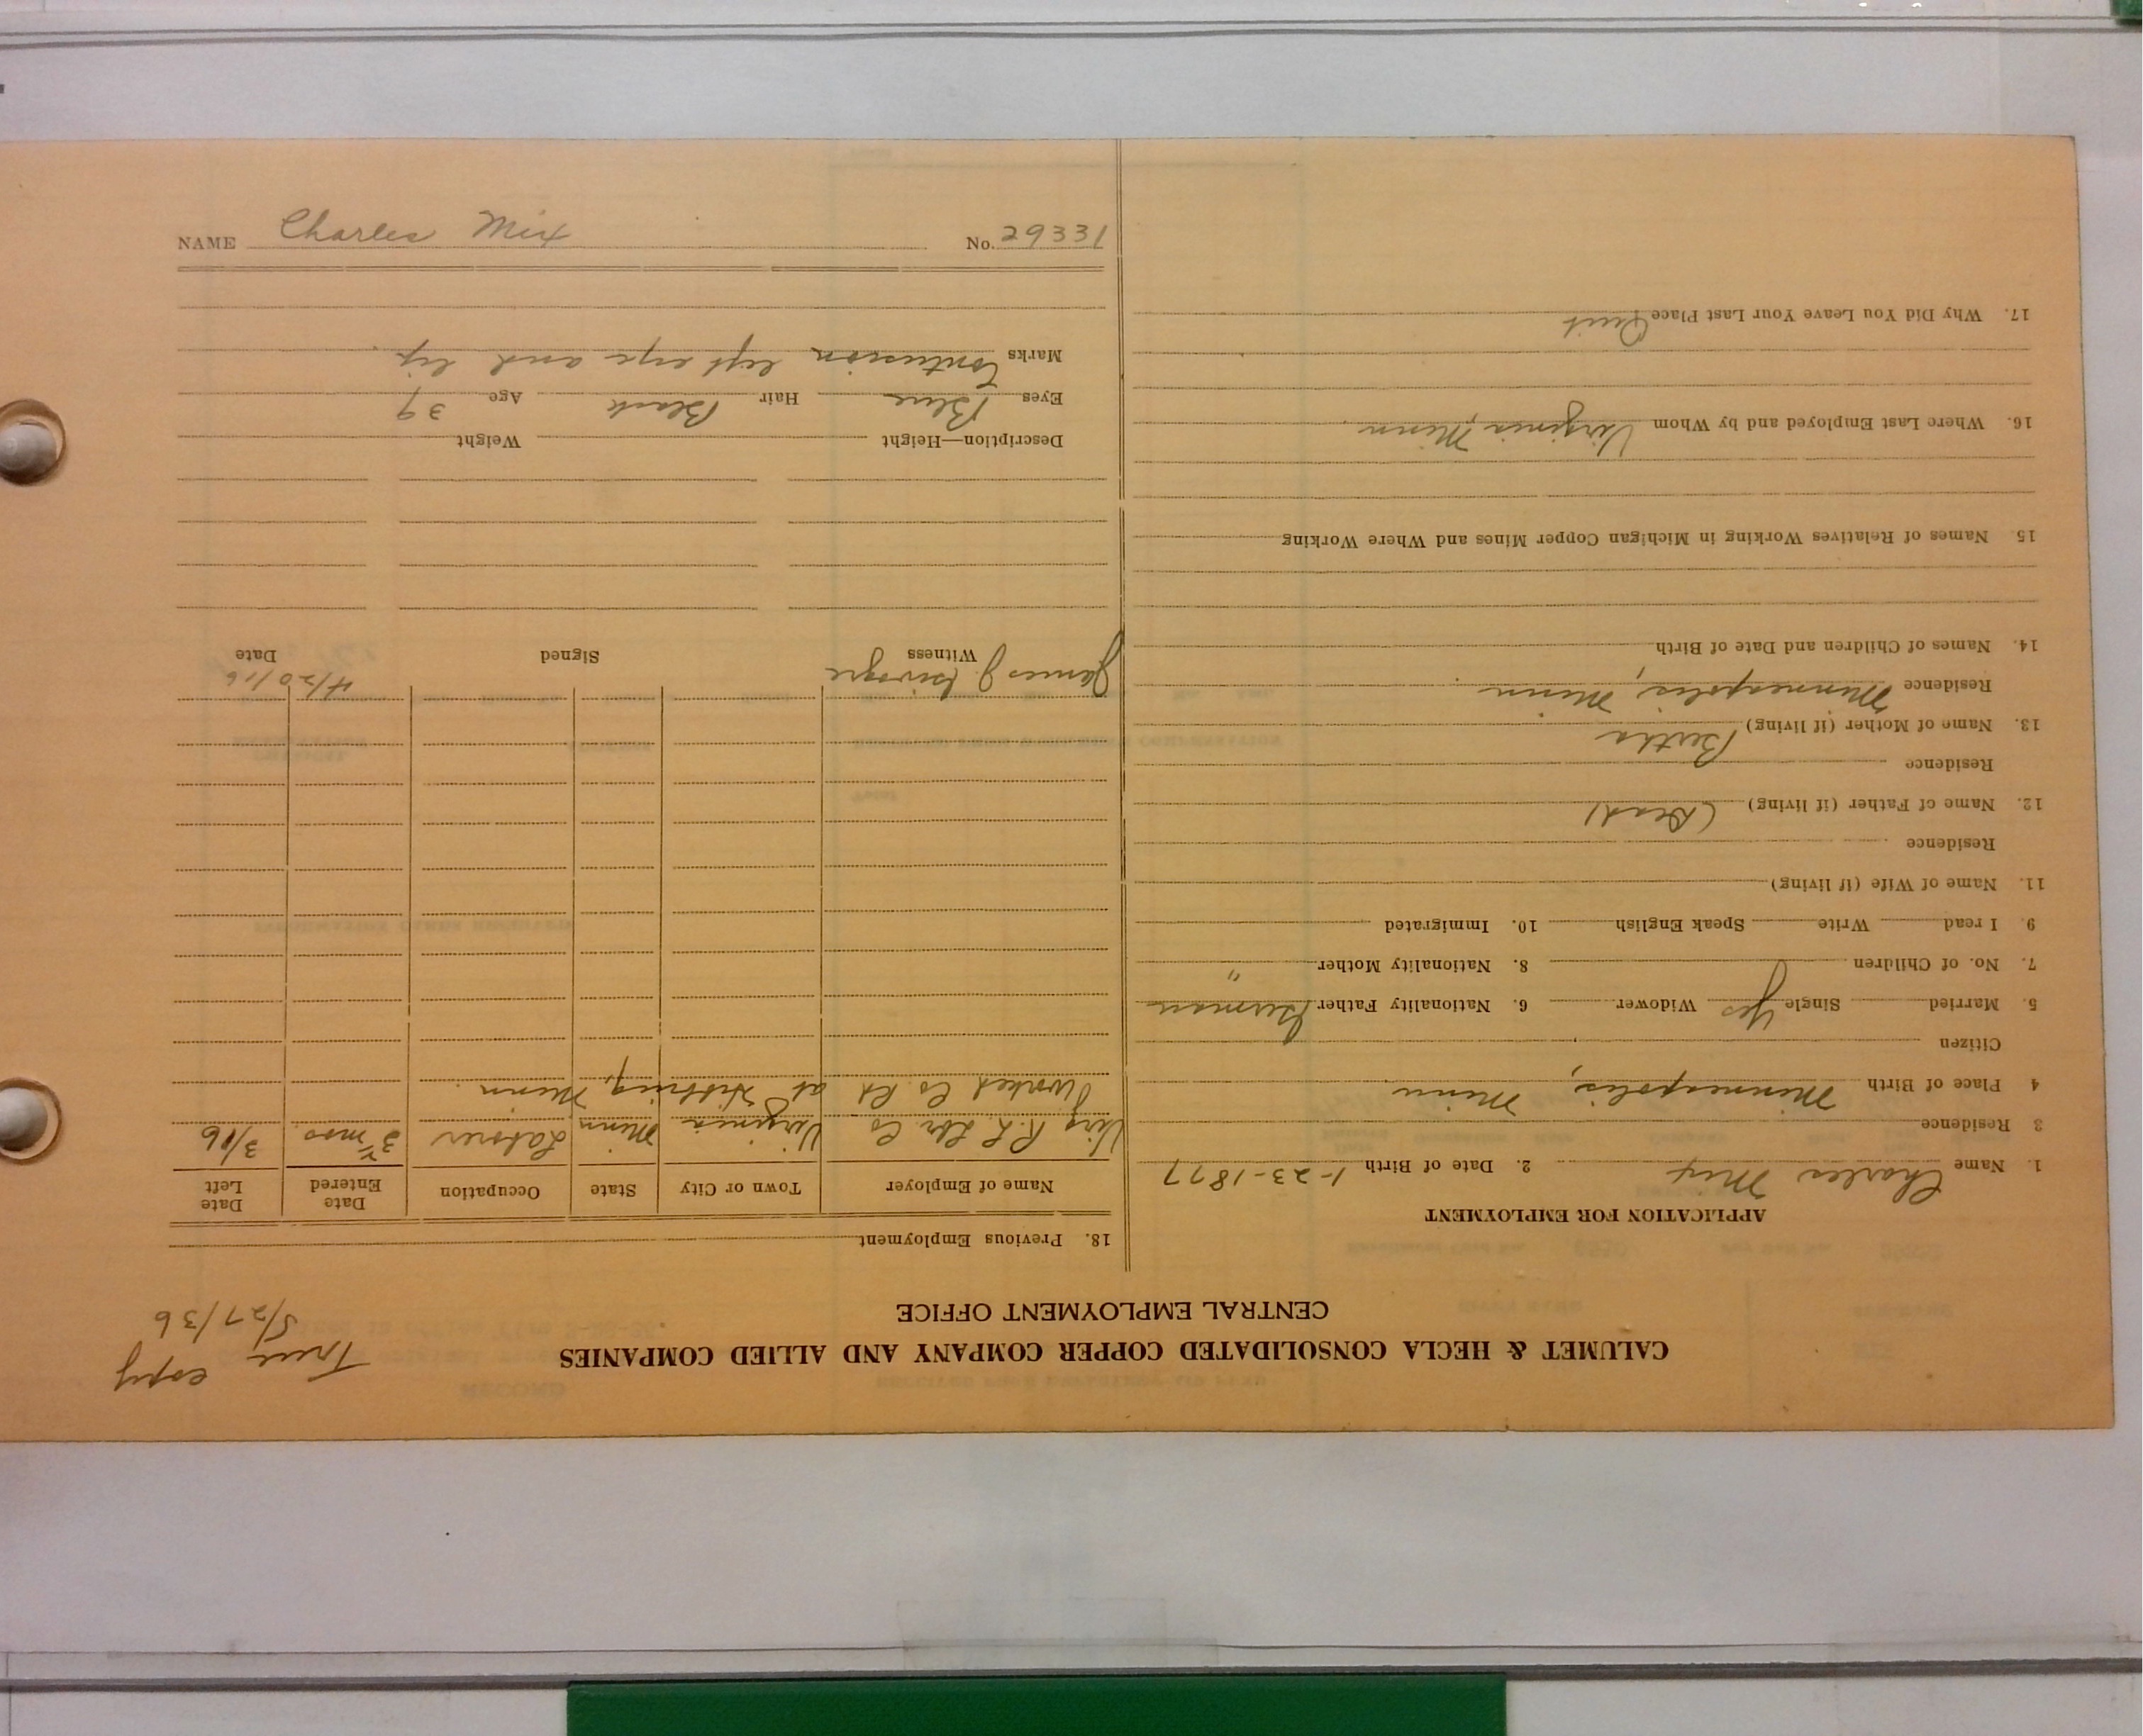 CALUMET & HECLA CONSOLIDATED COPPER COMPANY AND ALLIED COMPANIES
CENTRAL EMPLOYMENT OFFICE
True copy
5/27/36
APPLICATION FOR EMPLOYMENT
1. Name Charles Mix 2. Date of Birth 1-23-1877
3 Residence
4 Place of Birth Minneapolis, Minn
Citizen
5. Married Single Yes Widower 6. Nationality Father German
7. No. of Children 8. Nationality Mother "
9. I read Write Speak English 10. Immigrated
11. Name of Wife (if living)
Residence
12. Name of Father (if living) (Dead)
Residence
13. Name of Mother (if living) Bertha
Residence Minneapolis, Minn
14. Names of Children and Date of Birth
15. Names of Relatives Working in Michigan Copper Mines and Where Working
16. Where Last Employed and by Whom Virginia, Minn.
17. Why Did You Leave Your Last Place Quit
18. Previous Employment
Name of Employer Town or City State Occupation Date Entered Date Left
Virg R.L. Lbr. Co Virginia Minn Laborer 3 mos 3/16
worked Co. Rd at Hibbing, Minn.
James J. 4/20/16
Witness Signed Date
Description—Height Weight
Eyes Blue Hair Black Age 39
Marks Contusion left eye and lip.
NAME Charles Mix No. 29331